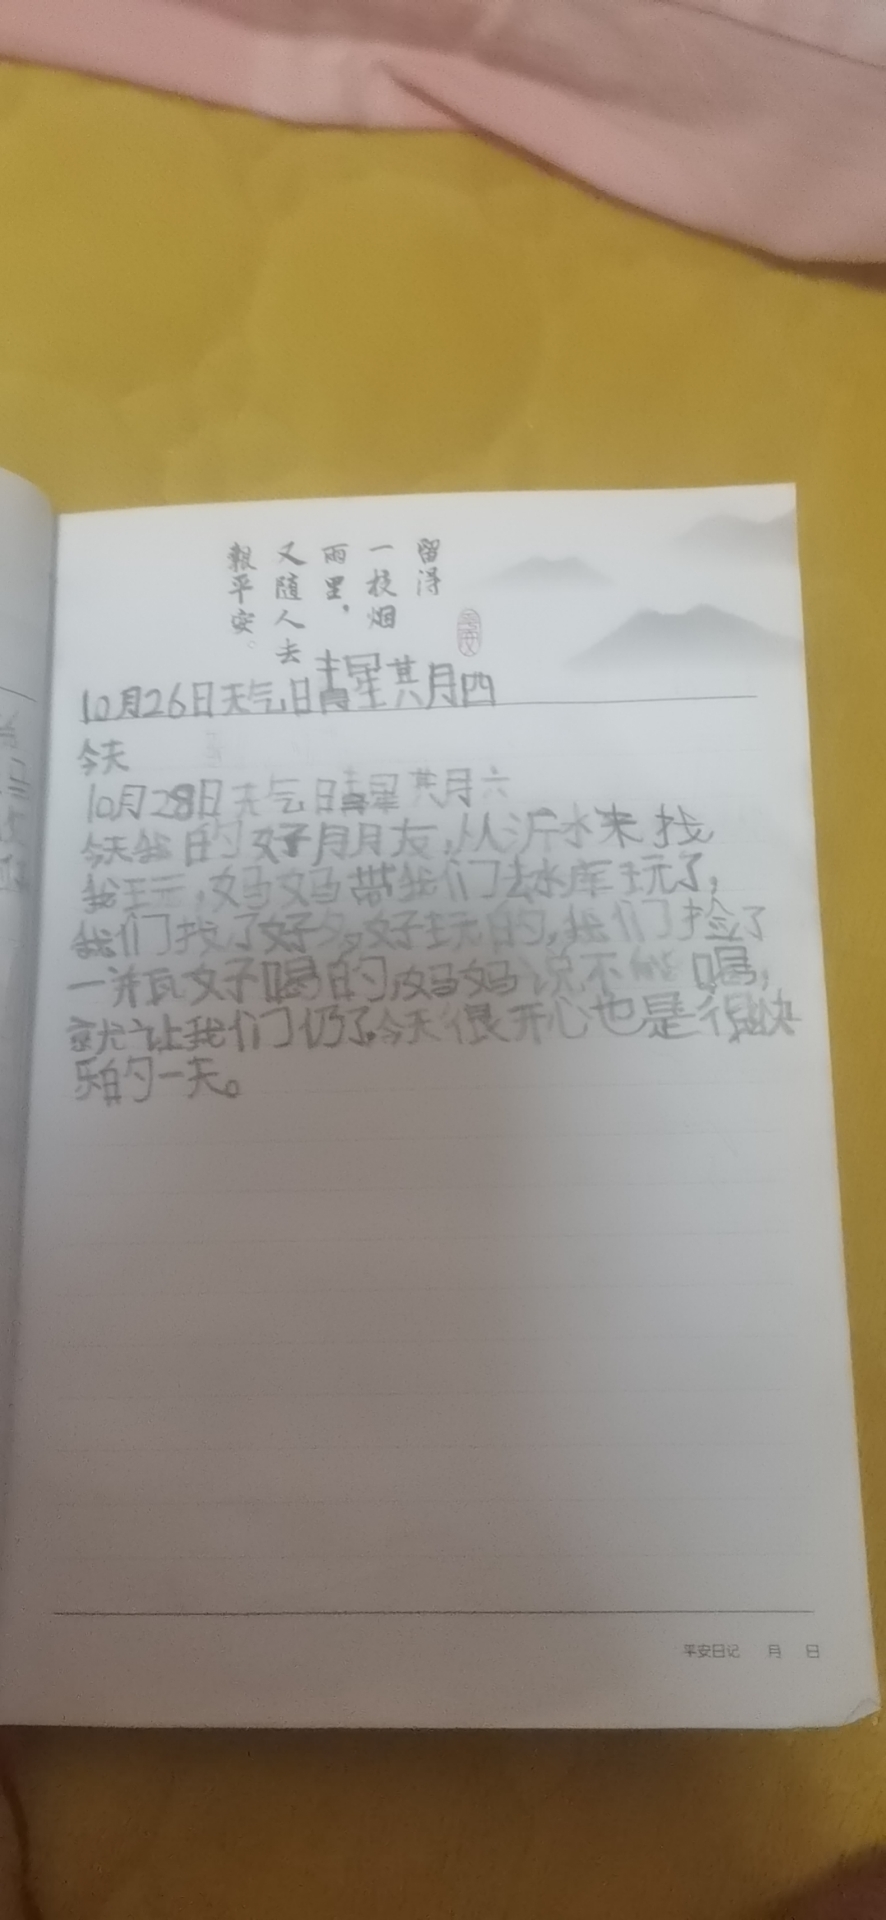 留得
一枝烟
雨里，
又随人去
報平安。
平安
10月26日天气晴星其月四
今天
10月28日天气晴星其月六
今天我的好朋友,从沂水来找
我玩,妈妈带我们去水库玩了,
我们找了好多好玩的,我们捡了
一瓶好喝的,妈妈说不能喝,
就让我们仍了,今天很开心也是很快
乐的一天。
平安日记 月 日